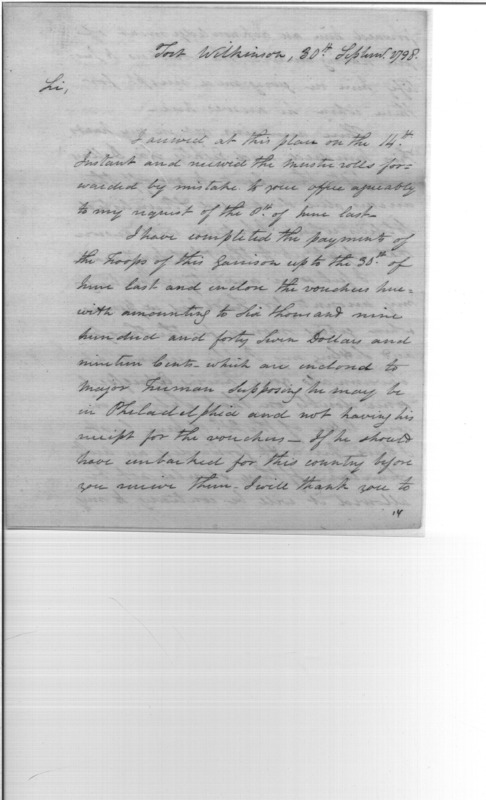 Fort Wilkinson, 30th Septemr. 1798.
Sir,
I arived at this place on the 14th.
Instant and received the muster rolls for=
warded by mistake to your office agreeably
to my request of the 8th. of June last.
I have completed the payments of
the Troops of this Garrison up to the 30th. of
June last and inclose the vouchers here=
with amounting to Six thousand nine
hundred and forty Seven Dollars and
nineteen Cents. which are inclosed to
Major Freeman supposing he may be
in Philadelphia and not having his
receipt for the vouchers — If he should
have embarked for this country before
you receive them. I will thank you to